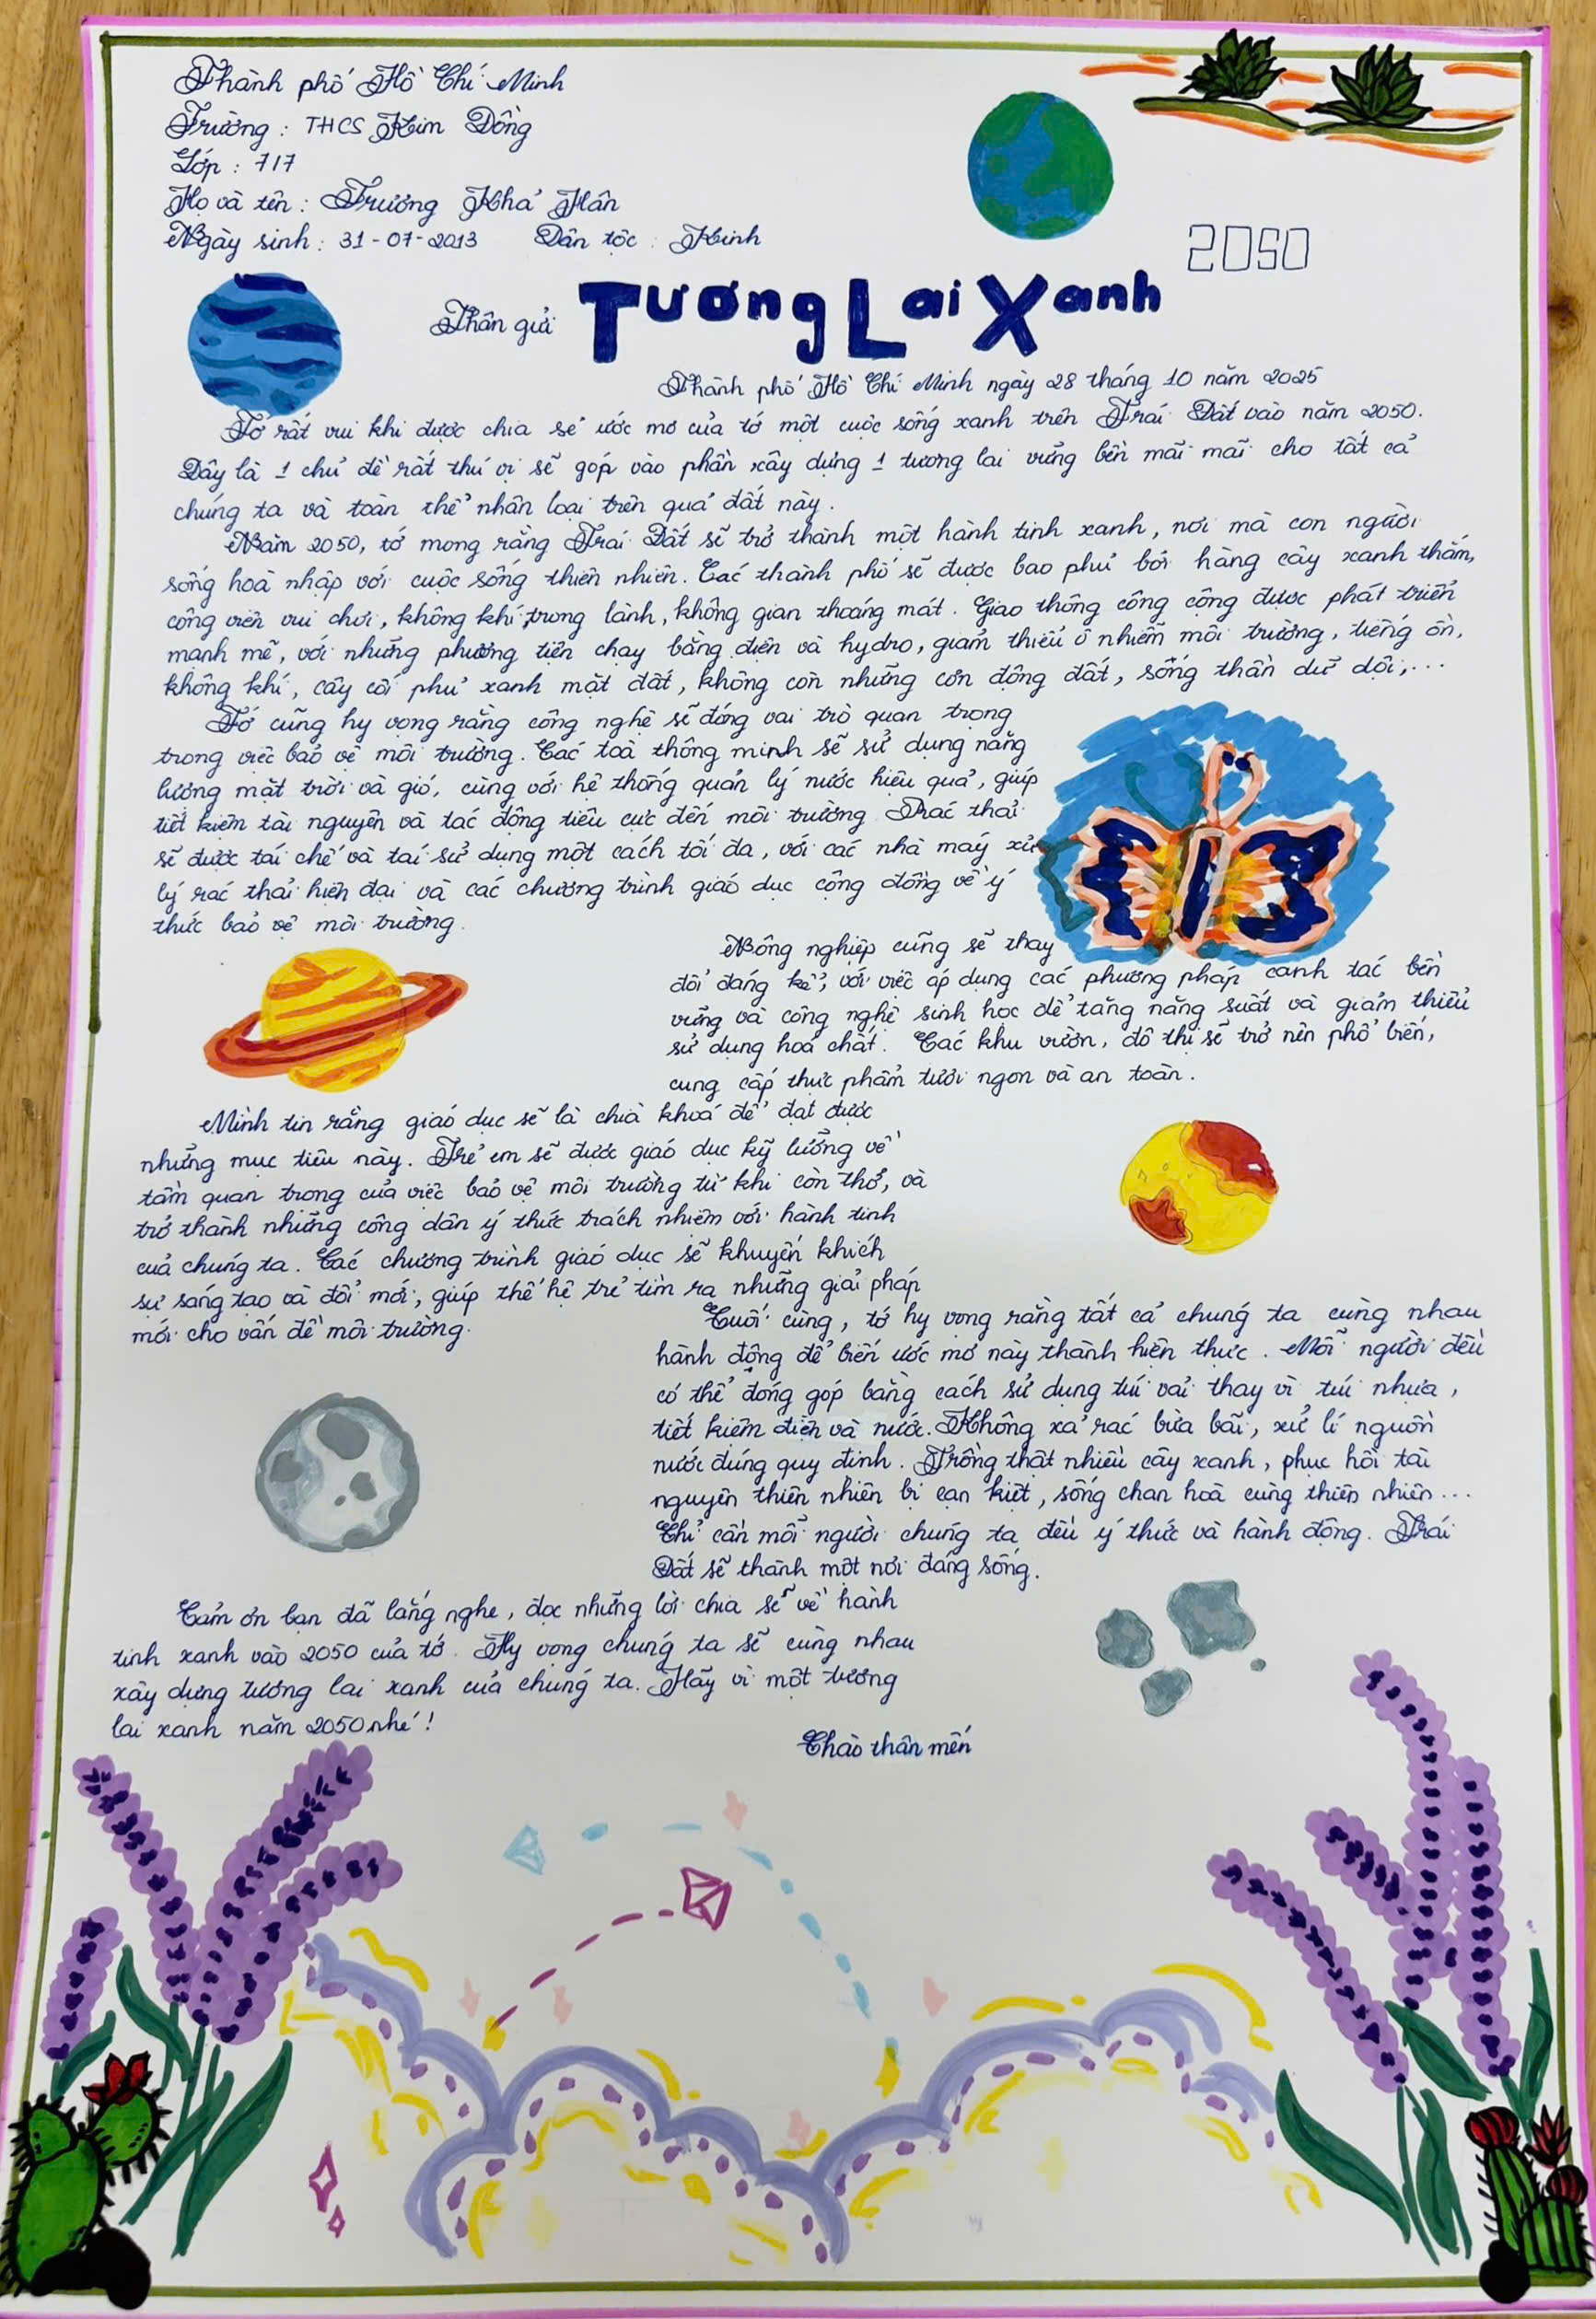 Thành phố Hồ Chí Minh
Trường : THCS Kim Đồng
Lớp : 7/7
Họ và tên : Trương Khả Hân
Ngày sinh : 31-07-2013 Dân tộc : Kinh
2050
Thân gửi Tương Lai Xanh
Thành phố Hồ Chí Minh ngày 28 tháng 10 năm 2025
Tớ rất vui khi được chia sẻ ước mơ của tớ một cuộc sống xanh trên Trái Đất vào năm 2050.
Đây là 1 chủ đề rất thú vị sẽ góp vào phần xây dựng 1 tương lai vững bền mãi mãi cho tất cả
chúng ta và toàn thể nhân loại trên quả đất này.
Năm 2050, tớ mong rằng Trái Đất sẽ trở thành một hành tinh xanh, nơi mà con người
sống hoà nhập với cuộc sống thiên nhiên. Các thành phố sẽ được bao phủ bởi hàng cây xanh thắm,
công viên vui chơi, không khí trong lành, không gian thoáng mát. Giao thông công cộng được phát triển
mạnh mẽ, với những phương tiện chạy bằng điện và hydro, giảm thiểu ô nhiễm môi trường, tiếng ồn,
không khí, cây cối phủ xanh mặt đất, không còn những cơn động đất, sóng thần dữ dội,...
Tớ cũng hy vọng rằng công nghệ sẽ đóng vai trò quan trọng
trong việc bảo vệ môi trường. Các toà thông minh sẽ sử dụng năng
lượng mặt trời và gió, cùng với hệ thống quản lý nước hiệu quả, giúp
tiết kiệm tài nguyên và tác động tiêu cực đến môi trường. Rác thải
sẽ được tái chế và tái sử dụng một cách tối đa, với các nhà máy xử
lý rác thải hiện đại và các chương trình giáo dục cộng đồng về ý
thức bảo vệ môi trường.
Nông nghiệp cũng sẽ thay
đổi đáng kể, với việc áp dụng các phương pháp canh tác bền
vững và công nghệ sinh học để tăng năng suất và giảm thiểu
sử dụng hoá chất. Các khu vườn, đô thị sẽ trở nên phổ biến,
cung cấp thực phẩm tươi ngon và an toàn.
Mình tin rằng giáo dục sẽ là chìa khoá để đạt được
những mục tiêu này. Trẻ em sẽ được giáo dục kỹ lưỡng về
tầm quan trọng của việc bảo vệ môi trường từ khi còn thơ, và
trở thành những công dân ý thức trách nhiệm với hành tinh
của chúng ta. Các chương trình giáo dục sẽ khuyến khích
sự sáng tạo và đổi mới, giúp thế hệ trẻ tìm ra những giải pháp
mới cho vấn đề môi trường.
Cuối cùng, tớ hy vọng rằng tất cả chúng ta cùng nhau
hành động để biến ước mơ này thành hiện thực. Mỗi người đều
có thể đóng góp bằng cách sử dụng túi vải thay vì túi nhựa,
tiết kiệm điện và nước. Không xả rác bừa bãi, xử lí nguồn
nước đúng quy định. Trồng thật nhiều cây xanh, phục hồi tài
nguyên thiên nhiên bị cạn kiệt, sống chan hoà cùng thiên nhiên...
Chỉ cần mỗi người chúng ta đều ý thức và hành động. Trái
Đất sẽ thành một nơi đáng sống.
Cảm ơn bạn đã lắng nghe, đọc những lời chia sẻ về hành
tinh xanh vào 2050 của tớ. Hy vọng chúng ta sẽ cùng nhau
xây dựng tương lai xanh của chúng ta. Hãy vì một tương
lai xanh năm 2050 nhé !
Chào thân mến